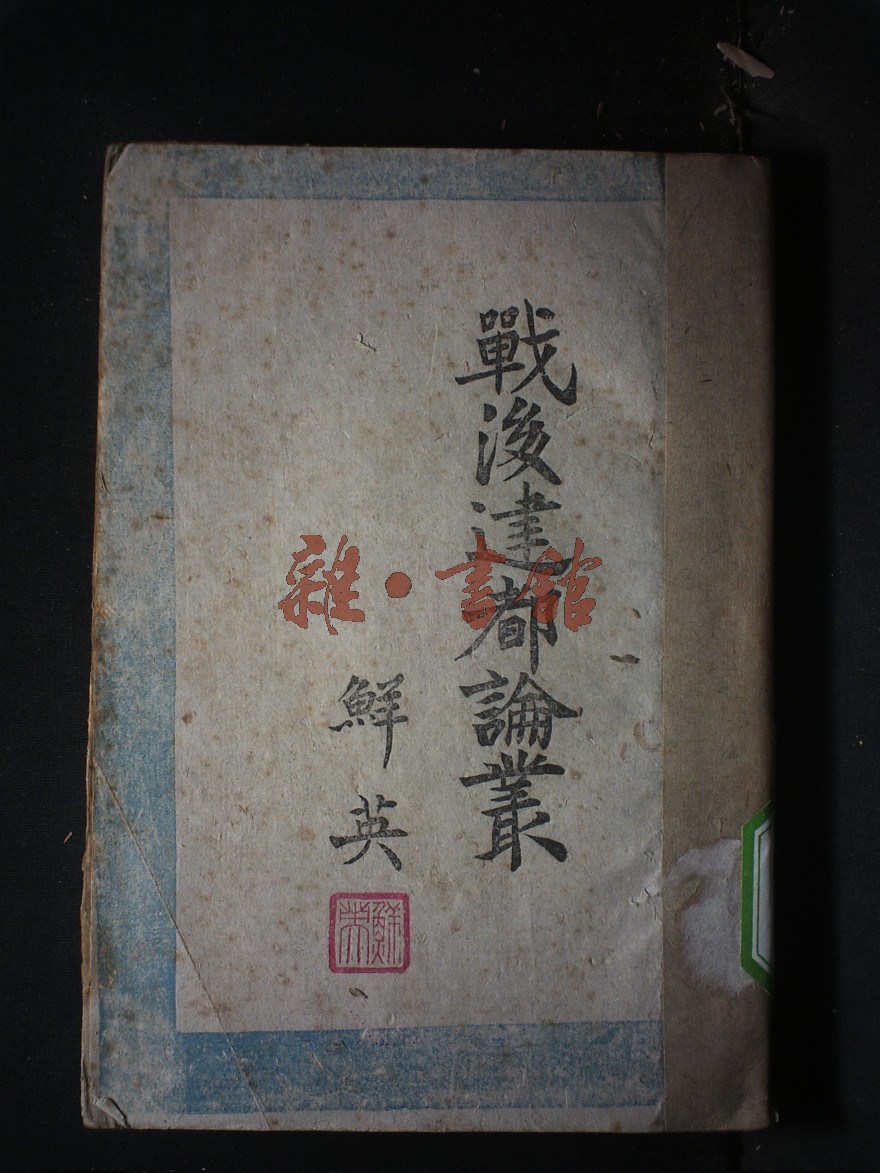 戰後建都論叢
鮮英
鮮英
雜·書館